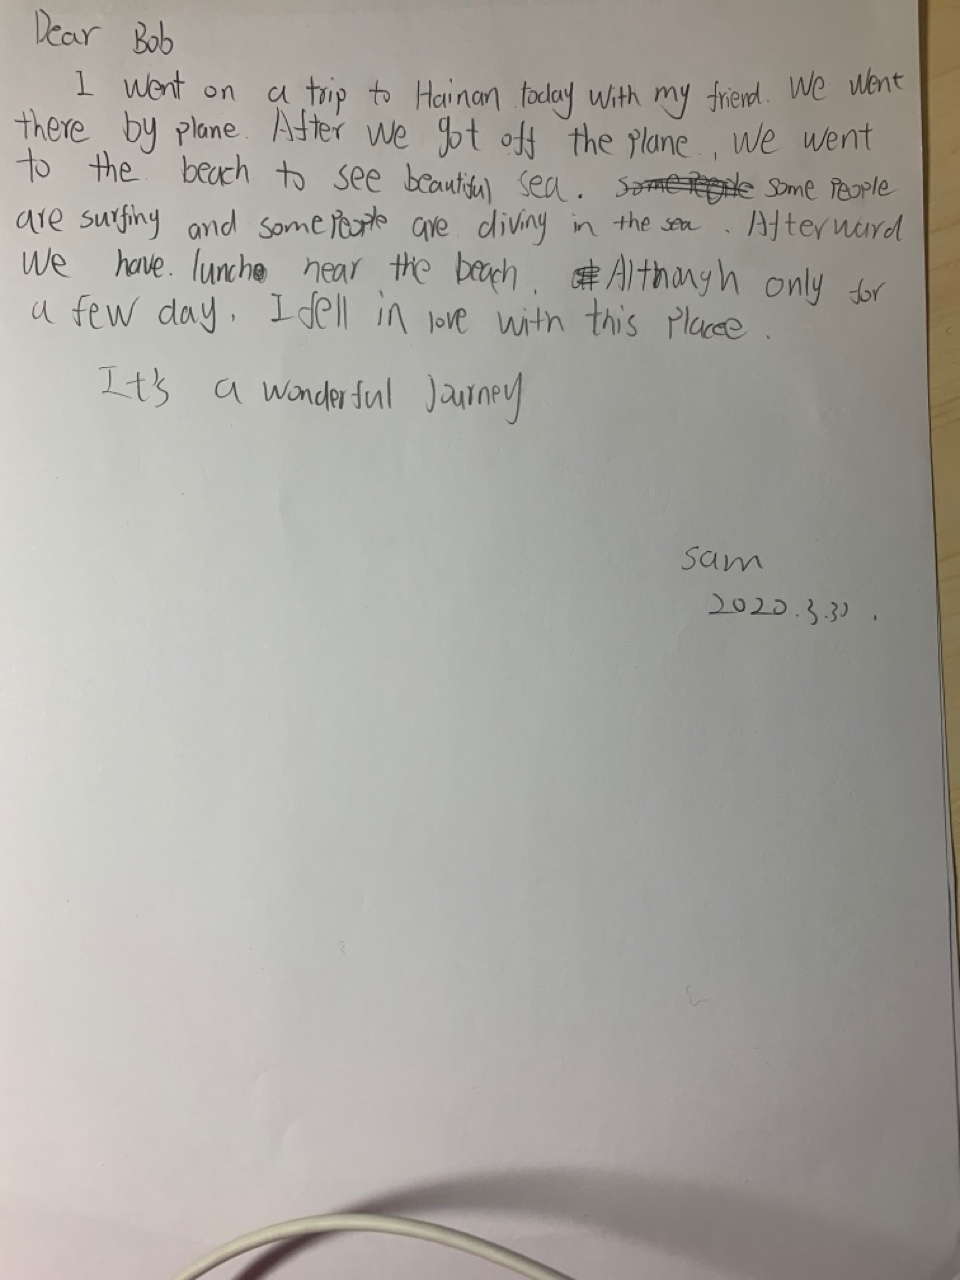 Dear Bob
I went on a trip to Hainan today with my friend. We went
there by plane. After we got off the plane, we went
to the beach to see beautiful sea. Some people
are surfiny and some people are diviny in the sea. Afterward
We have. lunch near the beach. Althongh only for
a few day. I fell in love with this place.
It's a wonderful Journey
Sam
2020.3.30.